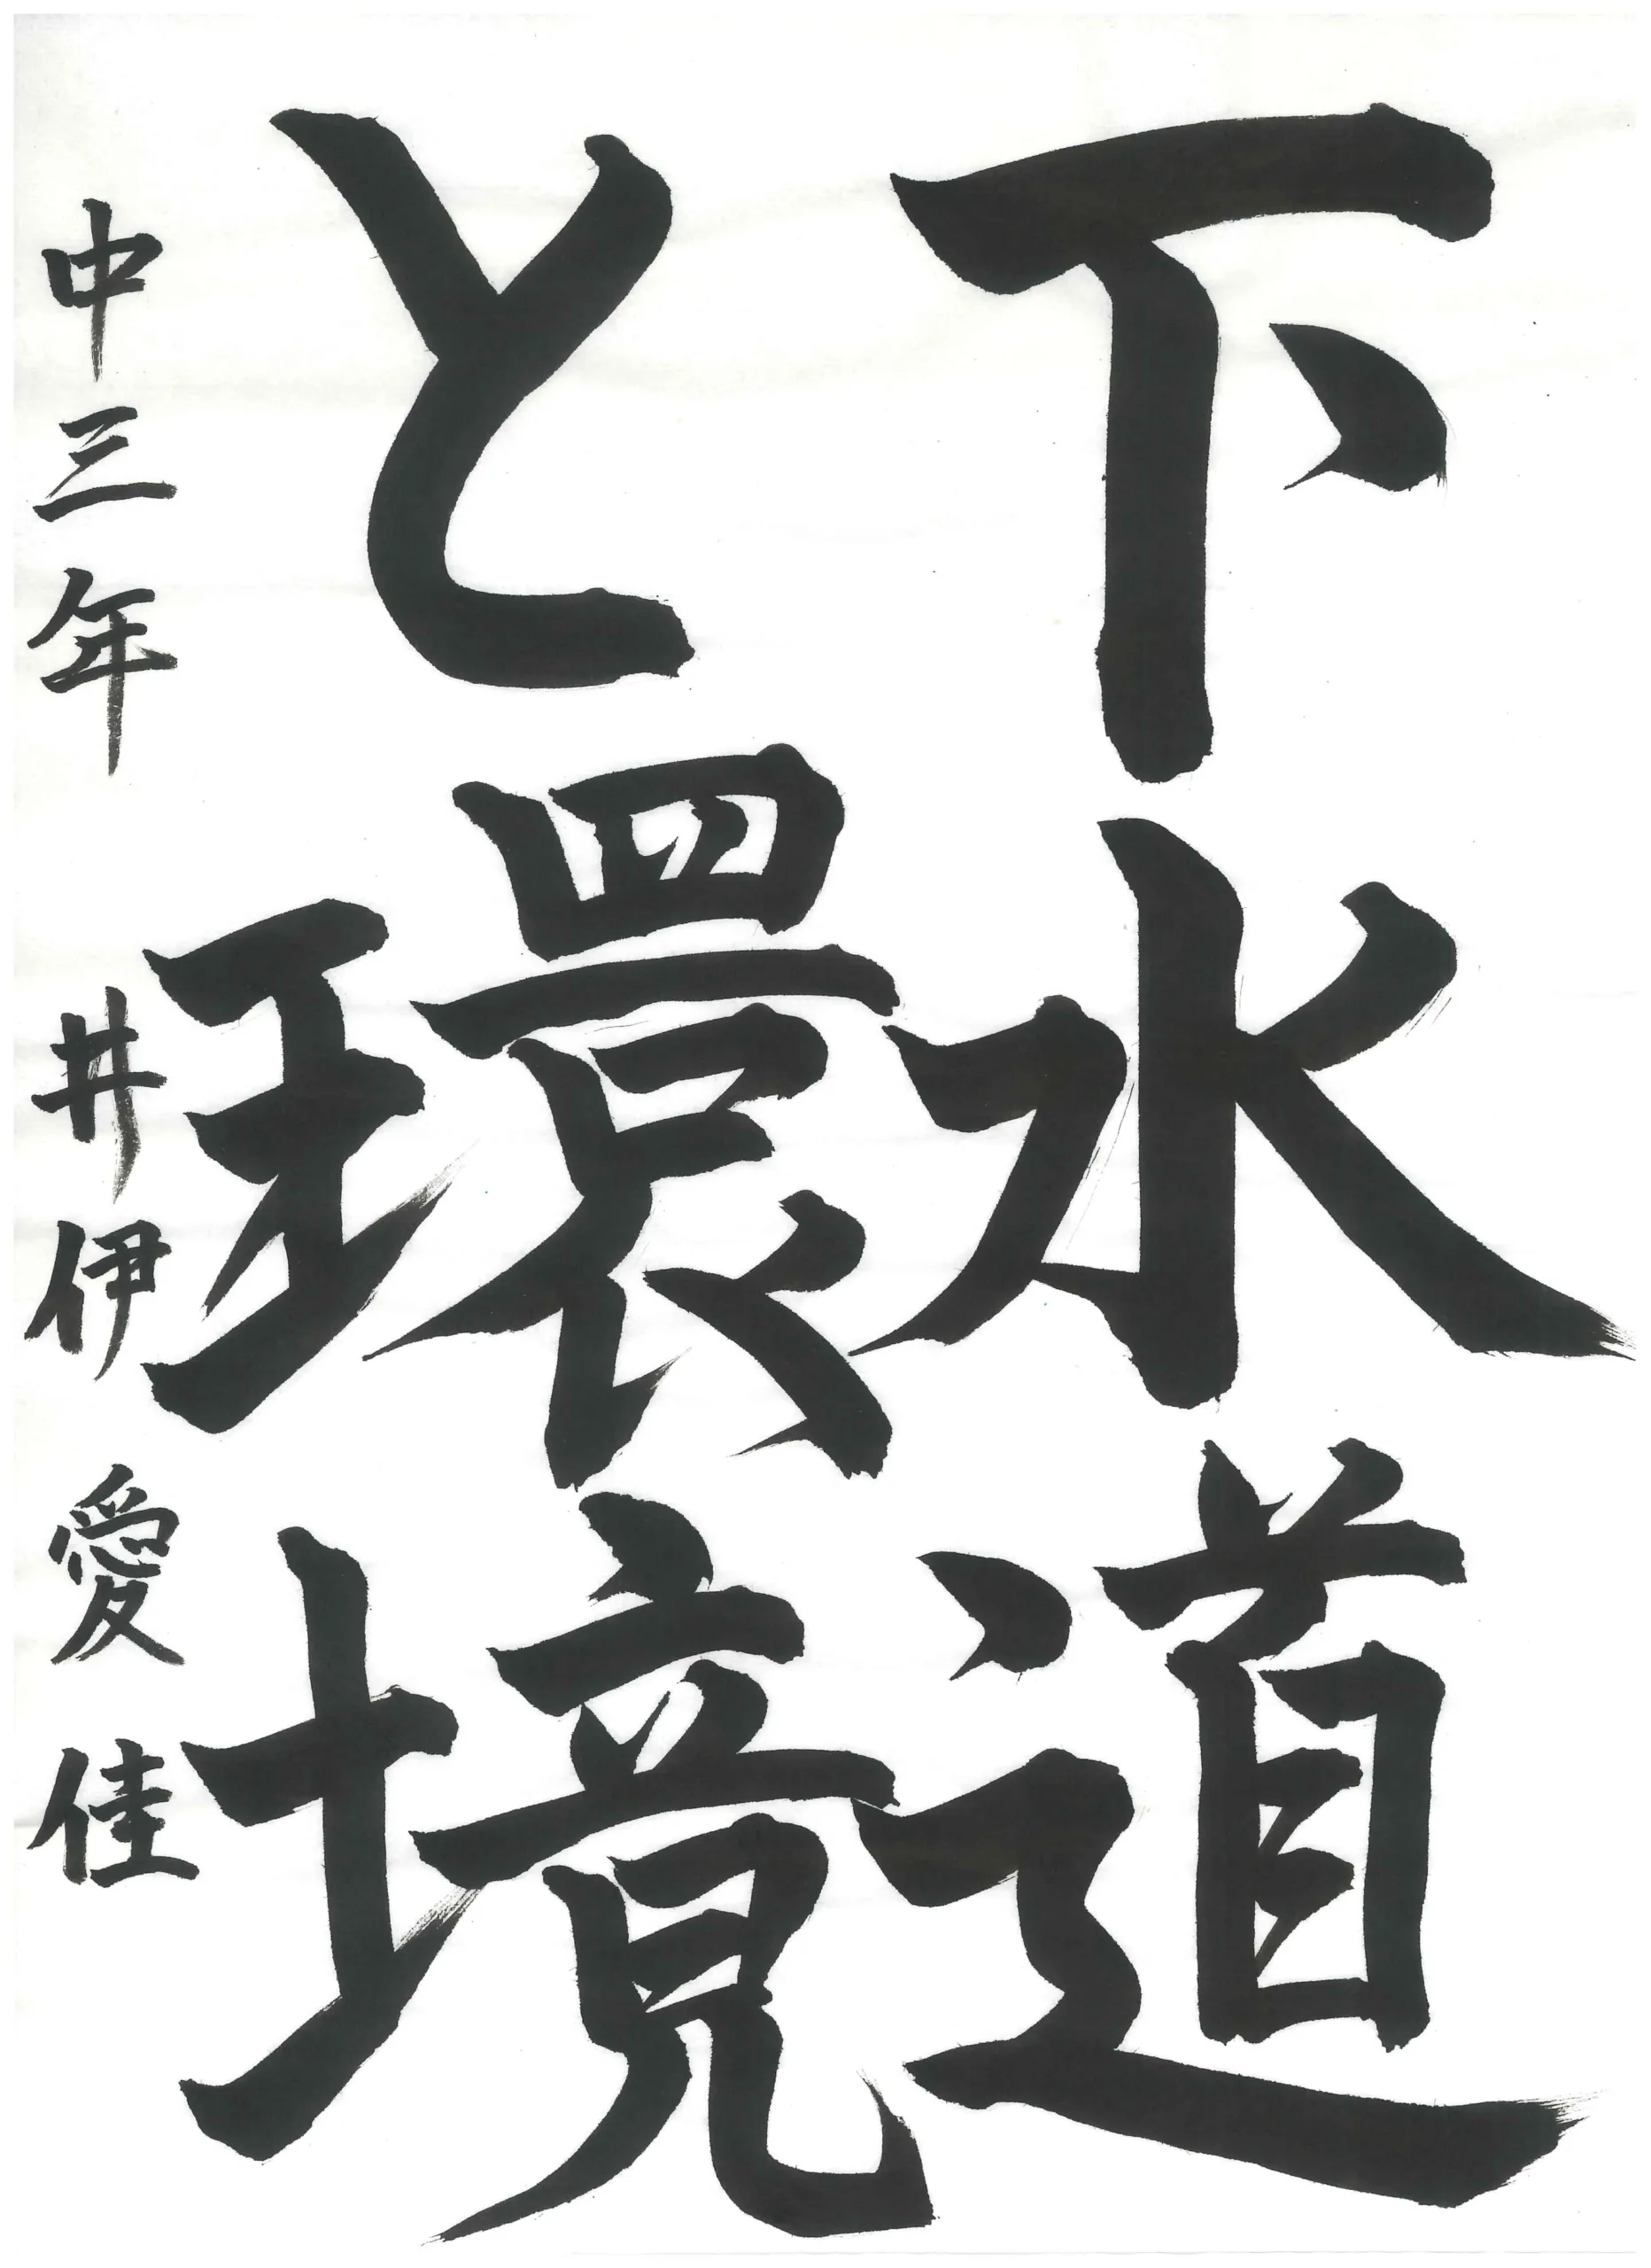 下水道
と環境
中三年 井伊愛佳